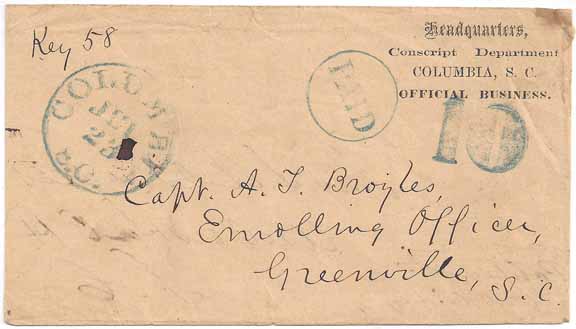 Key 58
Headquarters,
Conscript Department
COLUMBIA, S. C.
OFFICIAL BUSINESS.
PAID
10
COLUMBIA
S.C.
Capt. A. T. Broyles,
Enrolling Officer,
Greenville,
S. C.